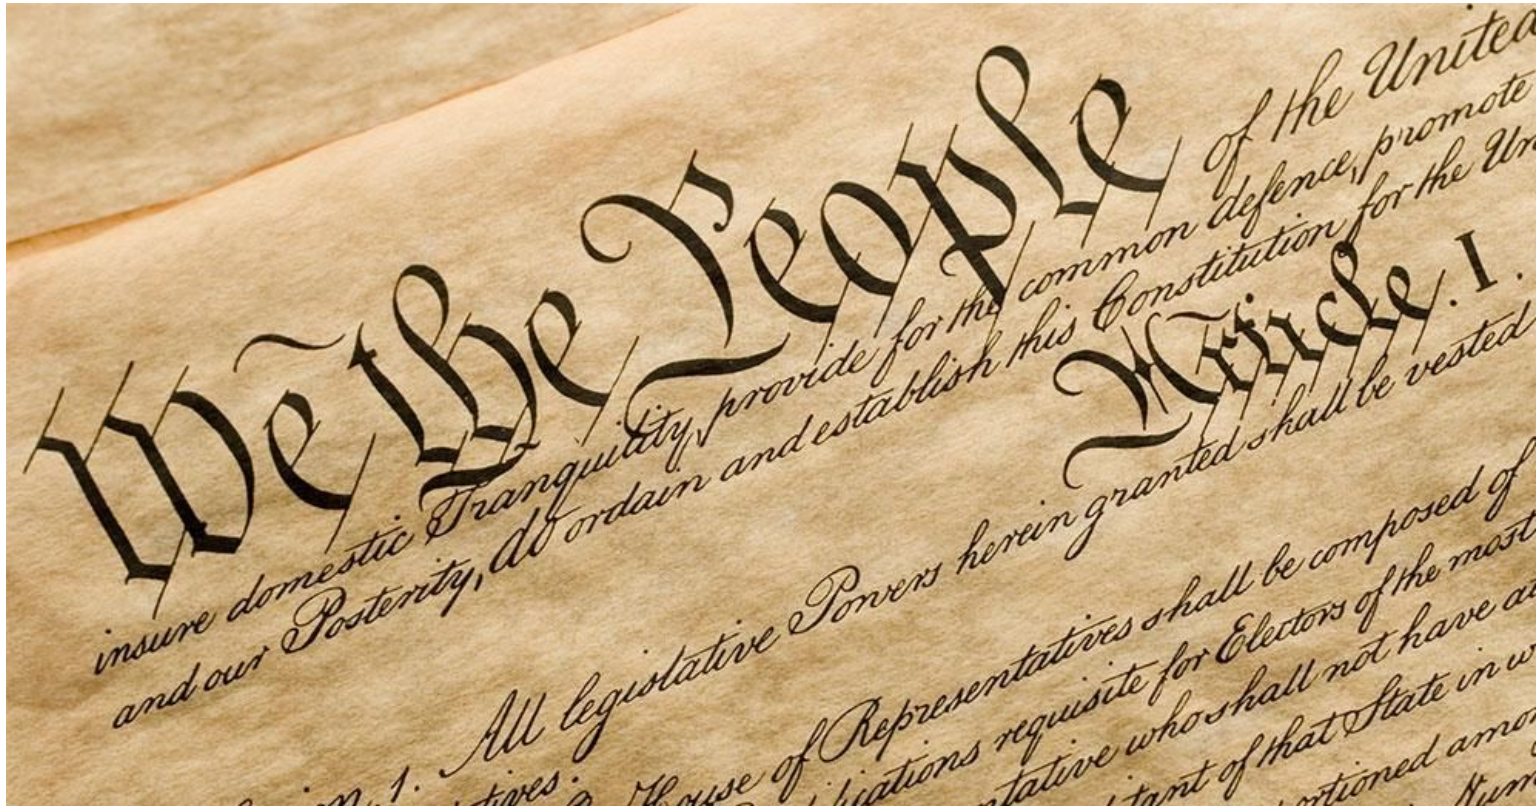 We the People of the United
insure domestic Tranquility, provide for the common defence, promote
and our Posterity, do ordain and establish this Constitution for the Un
Article. I.
n. 1. All legislative Powers herein granted shall be vested
tatives.
House of Representatives shall be composed of
ications requisite for Electors of the most
ntative who shall not have a
tant of that State in w
rtioned amo
Num